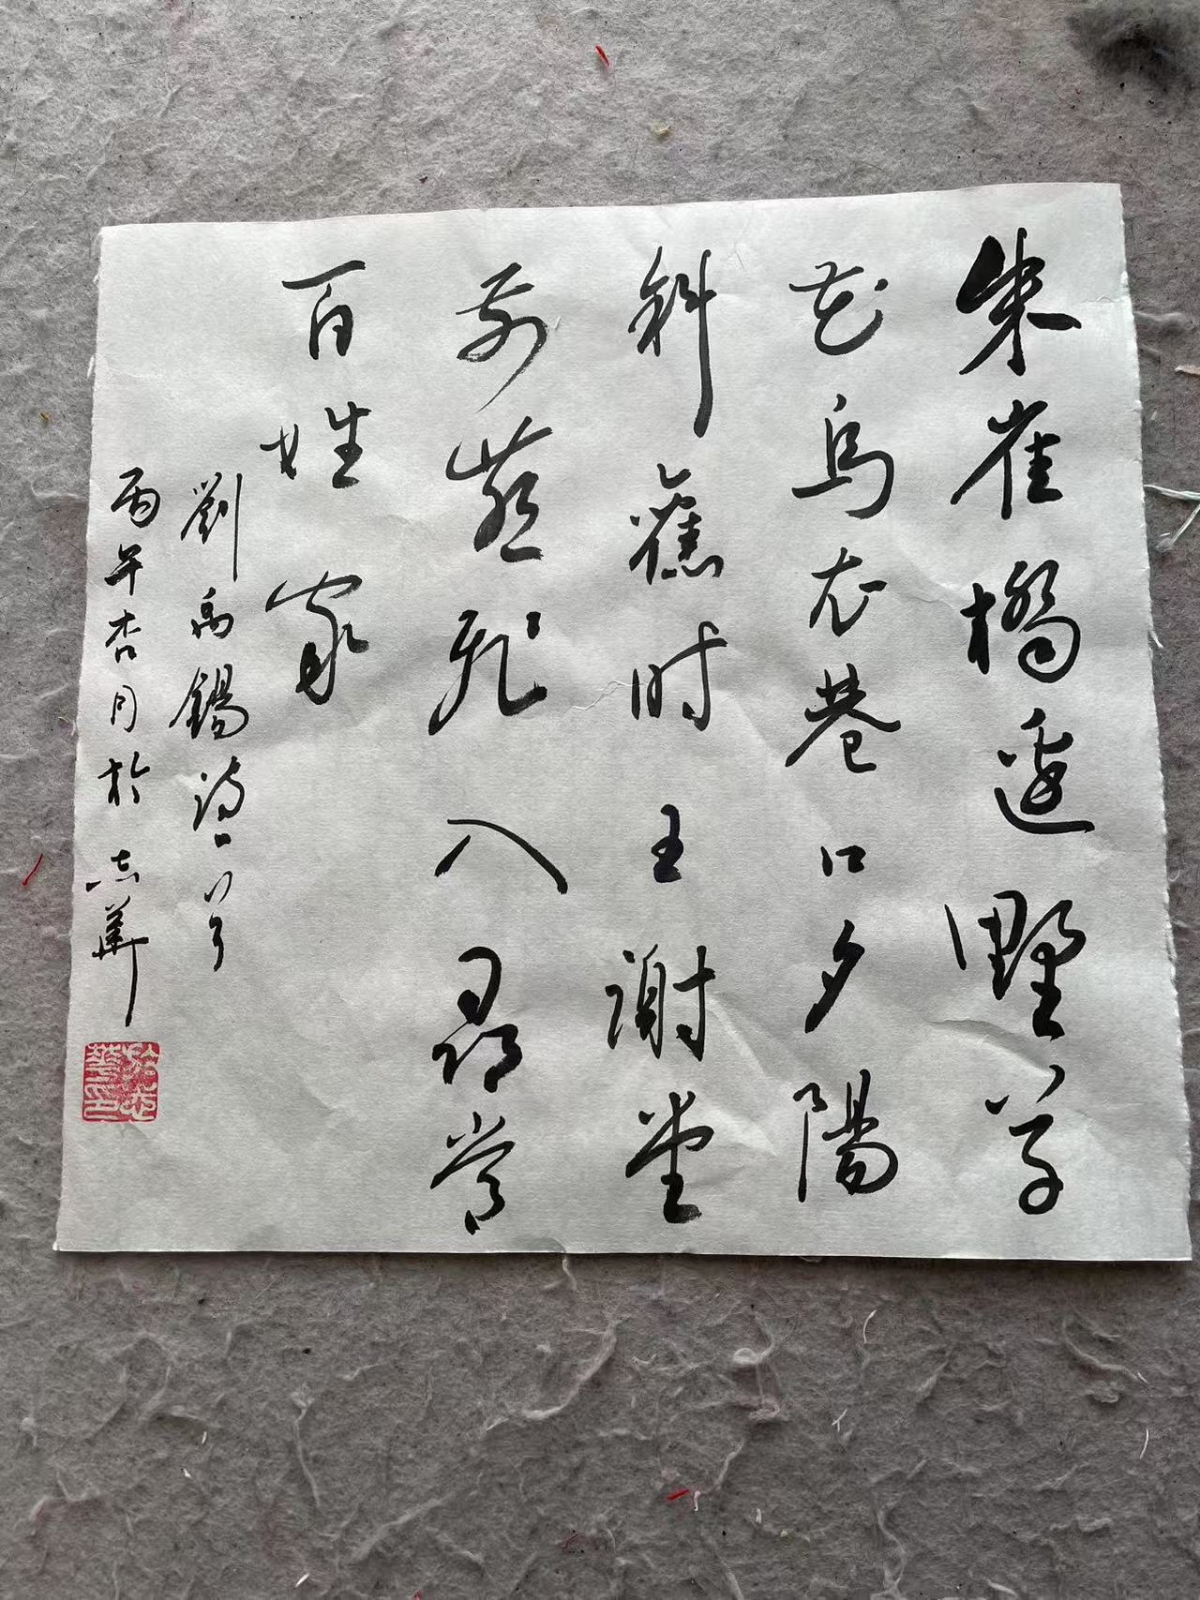 朱雀橋邊野草
花烏衣巷口夕陽
斜舊时王謝堂
前燕飛入尋常
百姓家
劉禹錫詩一首
丙午杏月於志華